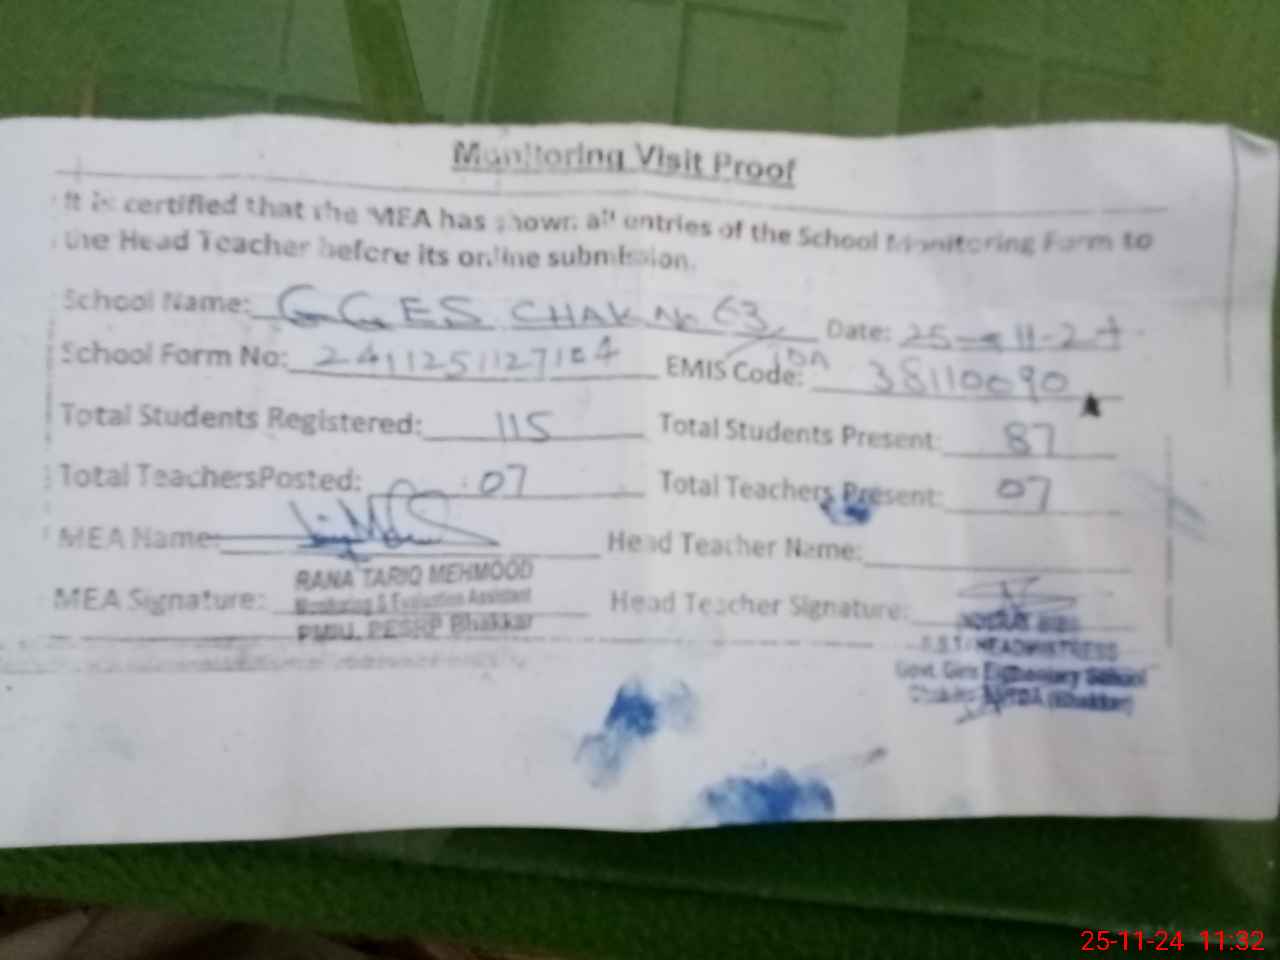 Monitoring Visit Proof
It is certified that the MEA has shown all entries of the School Monitoring Form to
the Head Teacher before its online submission.
School Name: GGES CHAK No 63 Date: 25-11-24
School Form No: EMIS Code: 38110090
Total Students Registered: 115 Total Students Present: 87
Total TeachersPosted: 07 Total Teachers Present: 07
MEA Name: Head Teacher Name:
RANA TARIQ MEHMOOD
MEA Signature: Monitoring & Evaluation Assistant Head Teacher Signature:
PMIU, PESRP Bhakkar
S.S.T/HEADMISTRESS
Govt. Girls Elementary School
(Bhakkar)
25-11-24 11:32